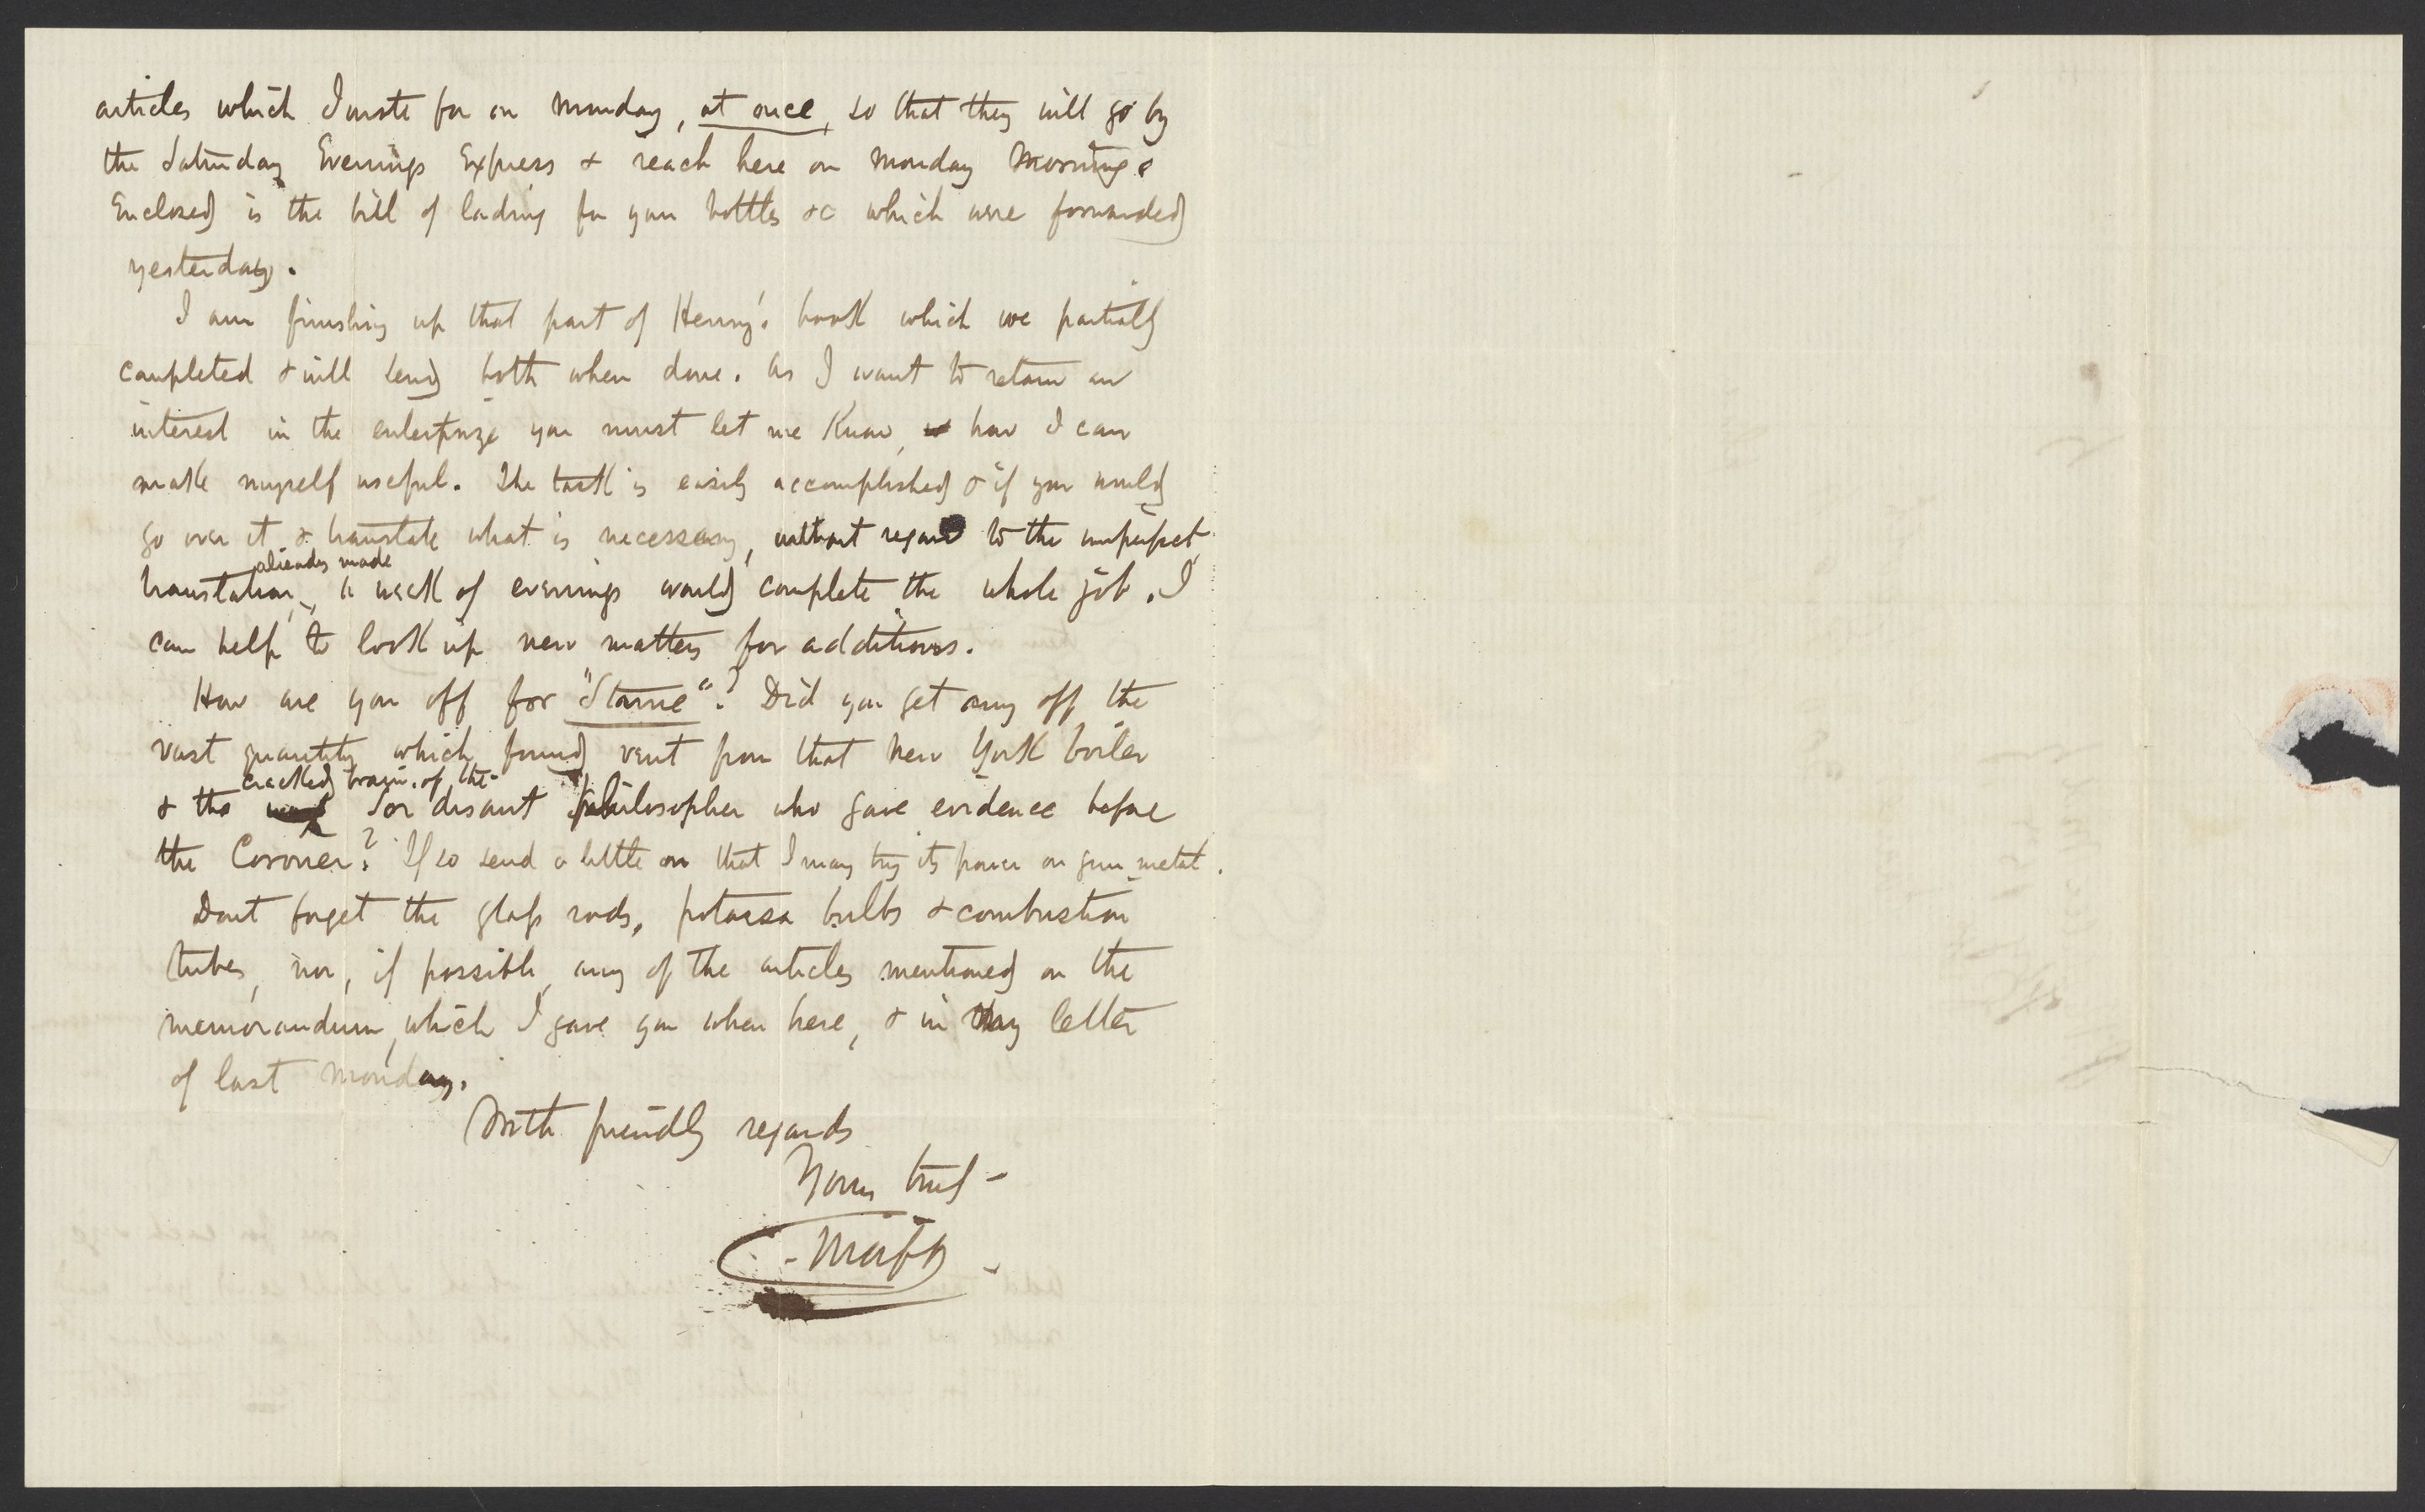 articles which I wrote for on Monday, at once, so that they will go by
the Saturday Evenings Express & reach here on Monday Morning.
Enclosed is the bill of lading for your bottles &c which were forwarded
yesterday.
I am finishing up that part of Henry's book which we partially
completed & will send both when done. As I want to retain an
interest in the enterprize you must let me know, how I can
make myself useful. The task is easily accomplished & if you would
go over it & translate what is necessary, without regard to the imperfect
already made
translation, a week of evenings would complete the whole job. I
can help to look up new matters for additions.
How are you off for "Stame"? Did you get any off the
vast quantity which found vent from that New York boiler
cracked brain of the
& the Soi disant philosopher who gave evidence before
the Coroner? If so send a little on that I may try its power on gun-metal.
Dont forget the glass rods, potassa bulbs & combustion
tubes, nor, if possible, any of the articles mentioned on the
memorandum, which I gave you when here, & in my letter
of last Monday.
With friendly regards
Yours truly -
C. Morfit